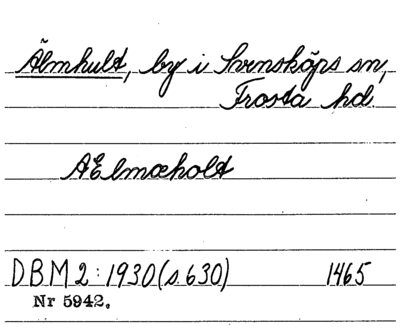 Älmhult, by i Svensköps sn,
Frosta hd
AElmæholt
DBM 2:1930 (s. 630) 1465
Nr 5942.